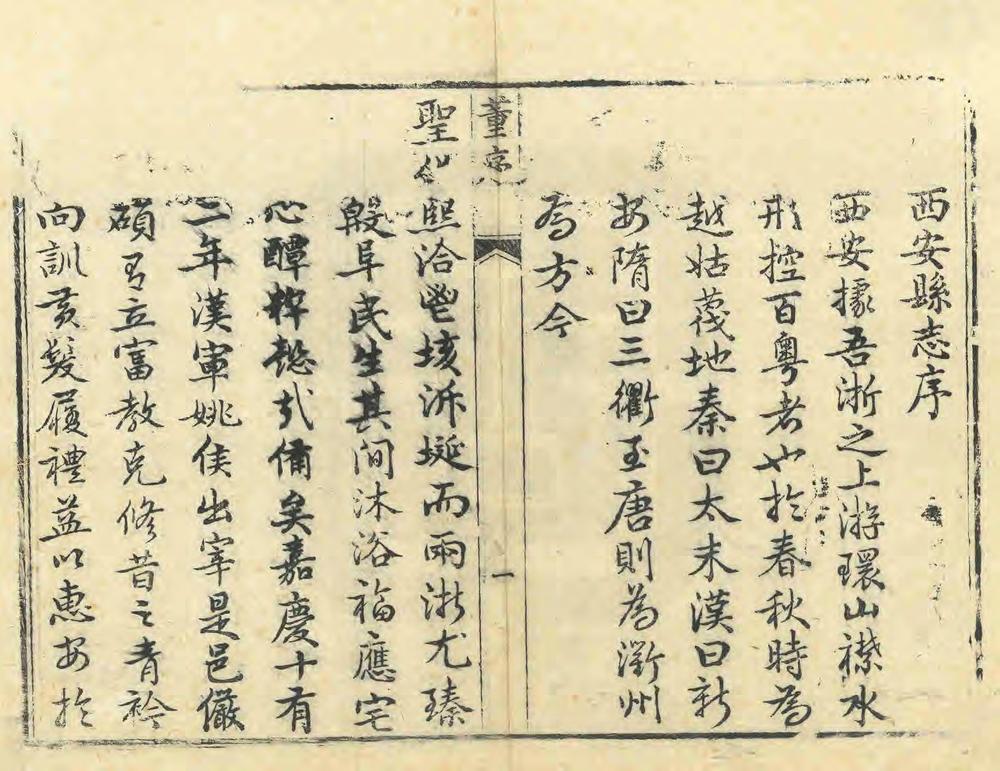 西安縣志序
西安據吾浙之上游環山襟水
形控百粵者也於春秋時為
越姑蔑地秦曰太末漢曰新
安隋曰三衢至唐則為衢州
為方今
董序
一
聖化
熙洽遝垓泝埏而兩浙尤臻
殷阜民生其間沐浴福應宅
心醰粹懿爍備矣嘉慶十有
二年漢軍姚侯出宰是邑儼
碩有立富教克修昔之青衿
向訓黃髮履禮益以惠安於